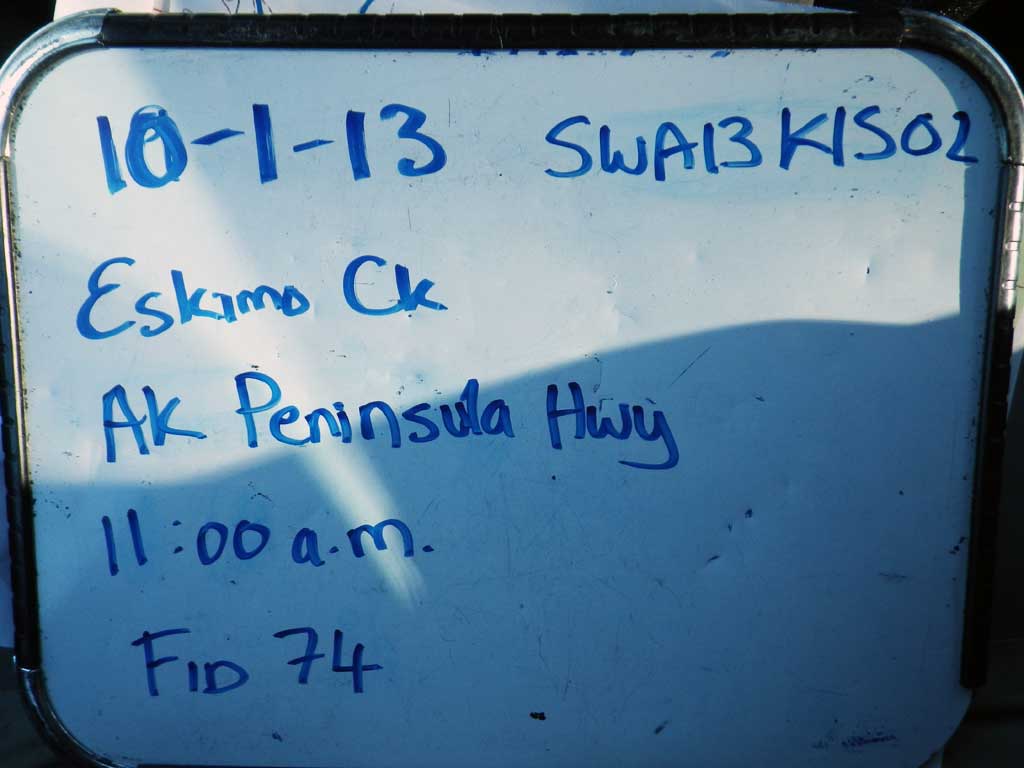 10-1-13 SWA13KIS02
Eskimo Ck
AK Peninsula Hwy
11:00 a.m.
FID 74